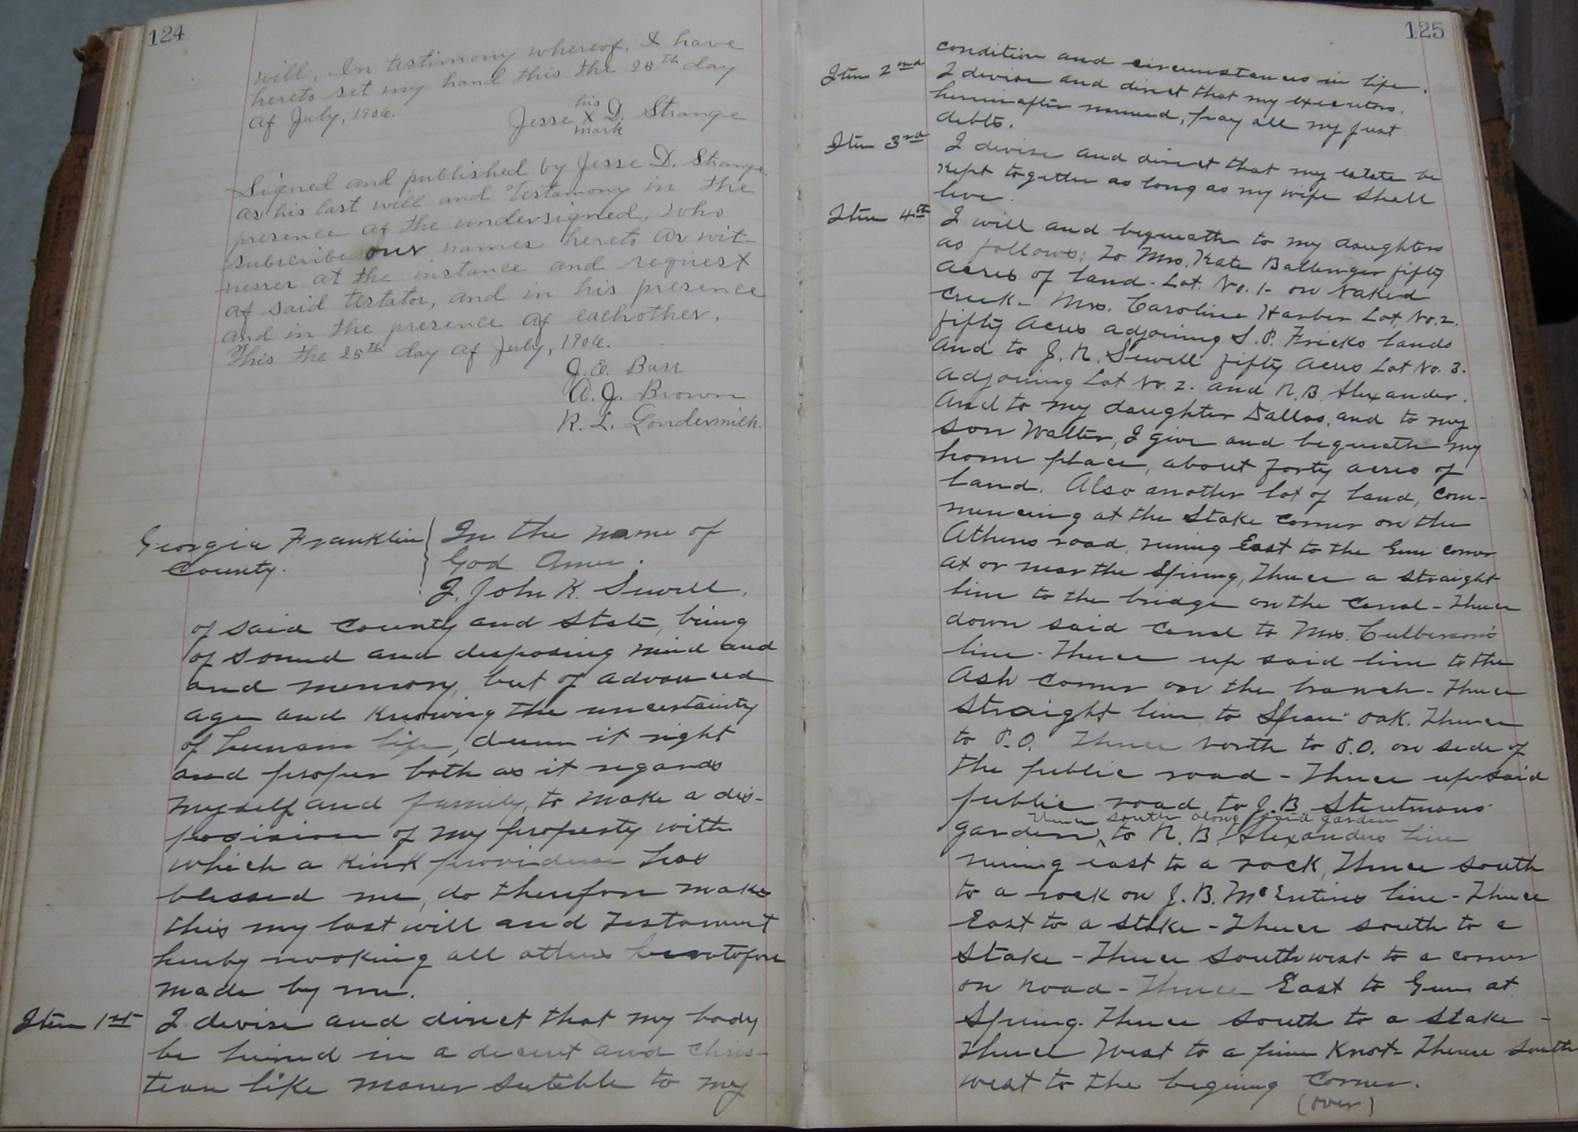 124
will, In testimony whereof, I have
hereto set my hand this the 28th day
of July, 1906.
his
Jesse X D. Strange
mark
Signed and published by Jesse D. Strange
as his last will and Testamony in the
presence of the undersigned, who
subscribe our names hereto as wit-
nesses at the instance and request
of said testator, and in his presence
and in the presence of eachother.
This the 28th day of July, 1906.
J. E. Barr
A. J. Brown
R. L. Londermilk.
Georgia Franklin
County.
In the name of
God Amen.
I, John K. Sewell,
of said county and State, being
of sound and disposing mind and
and memory, but of advanced
age and knowing the uncertainty
of human life, deem it right
and proper both as it regards
myself and family, to make a dis-
posision of my property with
which a kink providense has
blessed me, do therefore make
this my last will and Testament
hereby revoking all others heretofore
made by me.
Item 1st I devise and direct that my body
be buried in a decent and chris-
tean like maner sutible to my
125
condition and circumstances in life.
Item 2nd I devise and direct that my executors
hereinafter named, pay all my just
debts.
Item 3rd I devise and direct that my estate be
kept together as long as my wife shall
live.
Item 4th I will and bequeath to my daughters
as follows; To Mrs. Kate Ballenger fifty
acres of land - Lot No. 1- on Naked
Creek - Mrs. Caroline Harber Lot, No. 2.
fifty Acres adjoining S. P. Fricks lands
and to J. R. Sewell fifty acres Lot No. 3.
adjoining Lot No. 2. and R. B. Alexander.
And to my daughter Dallas, and to my
son Walter, I give and bequeath my
home place, about forty acres of
land. Also another lot of land, com-
mencing at the Stake corner on the
Athens road, runing East to the Gum corner
at or near the Spring, Thence a straight
line to the bridge on the canal - Thence
down said canal to Mrs. Culberson's
line - Thence up said line to the
Ash corner on the branch - Thence
straight line to Span oak. Thence
to P.O. Thence North to P.O. on side of
the public road - Thence up said
public road to J. B. Strutmans
Thence south along said garden
garden, to R. B. Alexanders line
runing east to a rock, Thence south
to a rock on J. B. McEntires line - Thence
East to a stake - Thence south to a
stake - Thence South west to a corner
on road - Thence East to Gum at
Spring. Thence south to a stake -
Thence West to a pine Knot - Thence South
west to the begining corner.
(over)